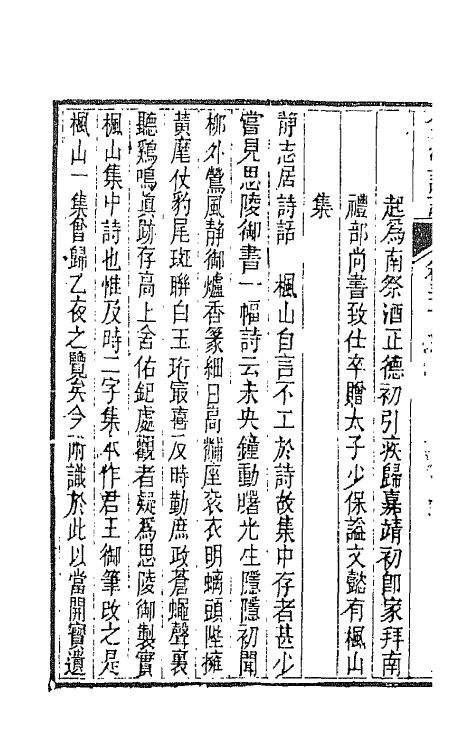 起為南祭酒正德初引疾歸嘉靖初卽家拜南
禮部尚書致仕卒贈太子少保謚文懿有楓山
集
靜志居詩話 楓山自言不工於詩故集中存者甚少
嘗見思陵御書一幅詩云未央鐘動曙光生隱隱初聞
柳外鶯風靜御爐香篆細日高黼座袞衣明螭頭陛擁
黃麾仗豹尾班聯白玉珩最喜及時勤庶政蒼蠅聲裏
聽鷄鳴眞跡存高上舍佑釲處觀者疑爲思陵御製實
楓山集中詩也惟及時二字集本作君王御筆改之是
楓山一集曾歸乙夜之覽矣今附識於此以當開寶遺